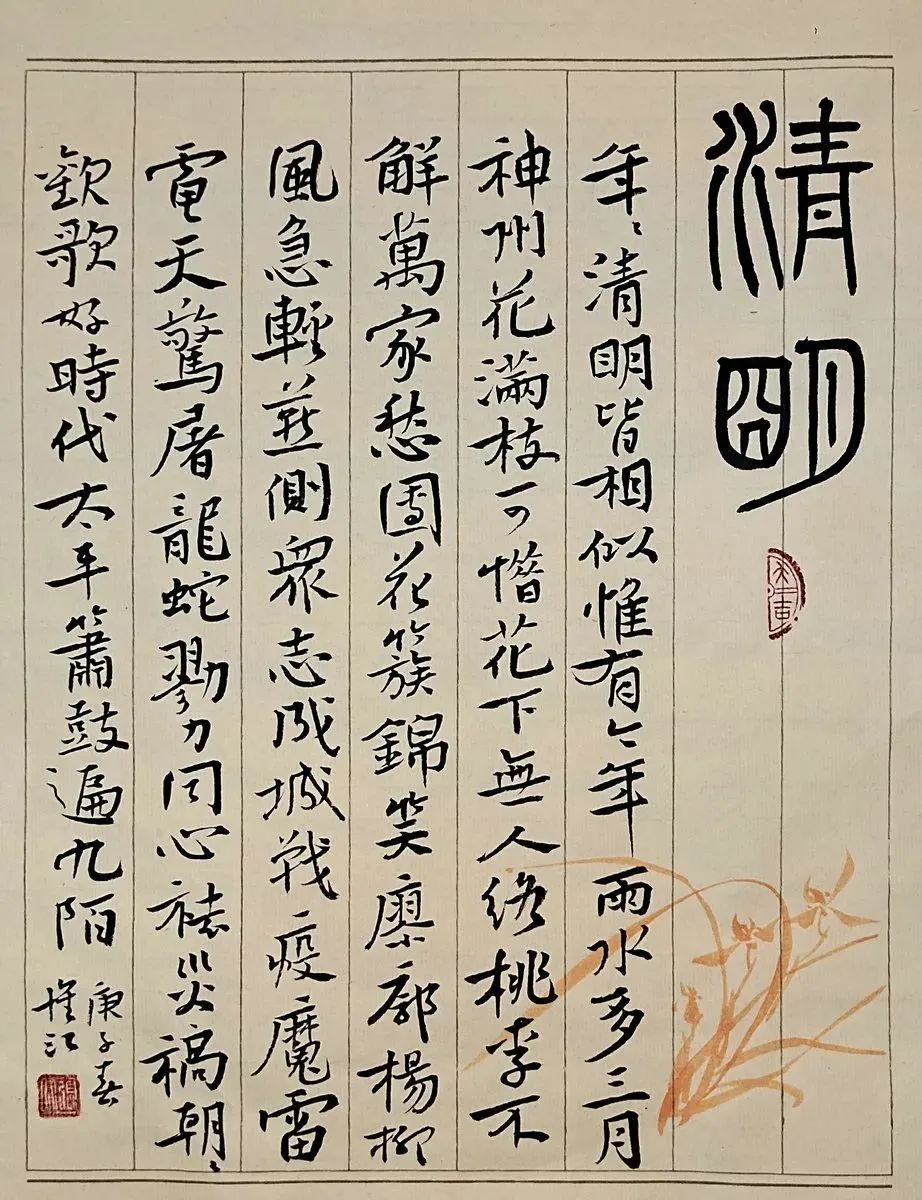 清明
年〻清明皆相似惟有今年雨水多三月
神州花滿枝可惜花下無人終桃李不
解萬家愁團花簇錦笑廖郭楊柳
風急輕燕側眾志成城戰疫魔雷
電天驚屠龍蛇勠力同心祛災禍朝〻
歡歌好時代太平簫鼓遍九陌
庚子春
惟江